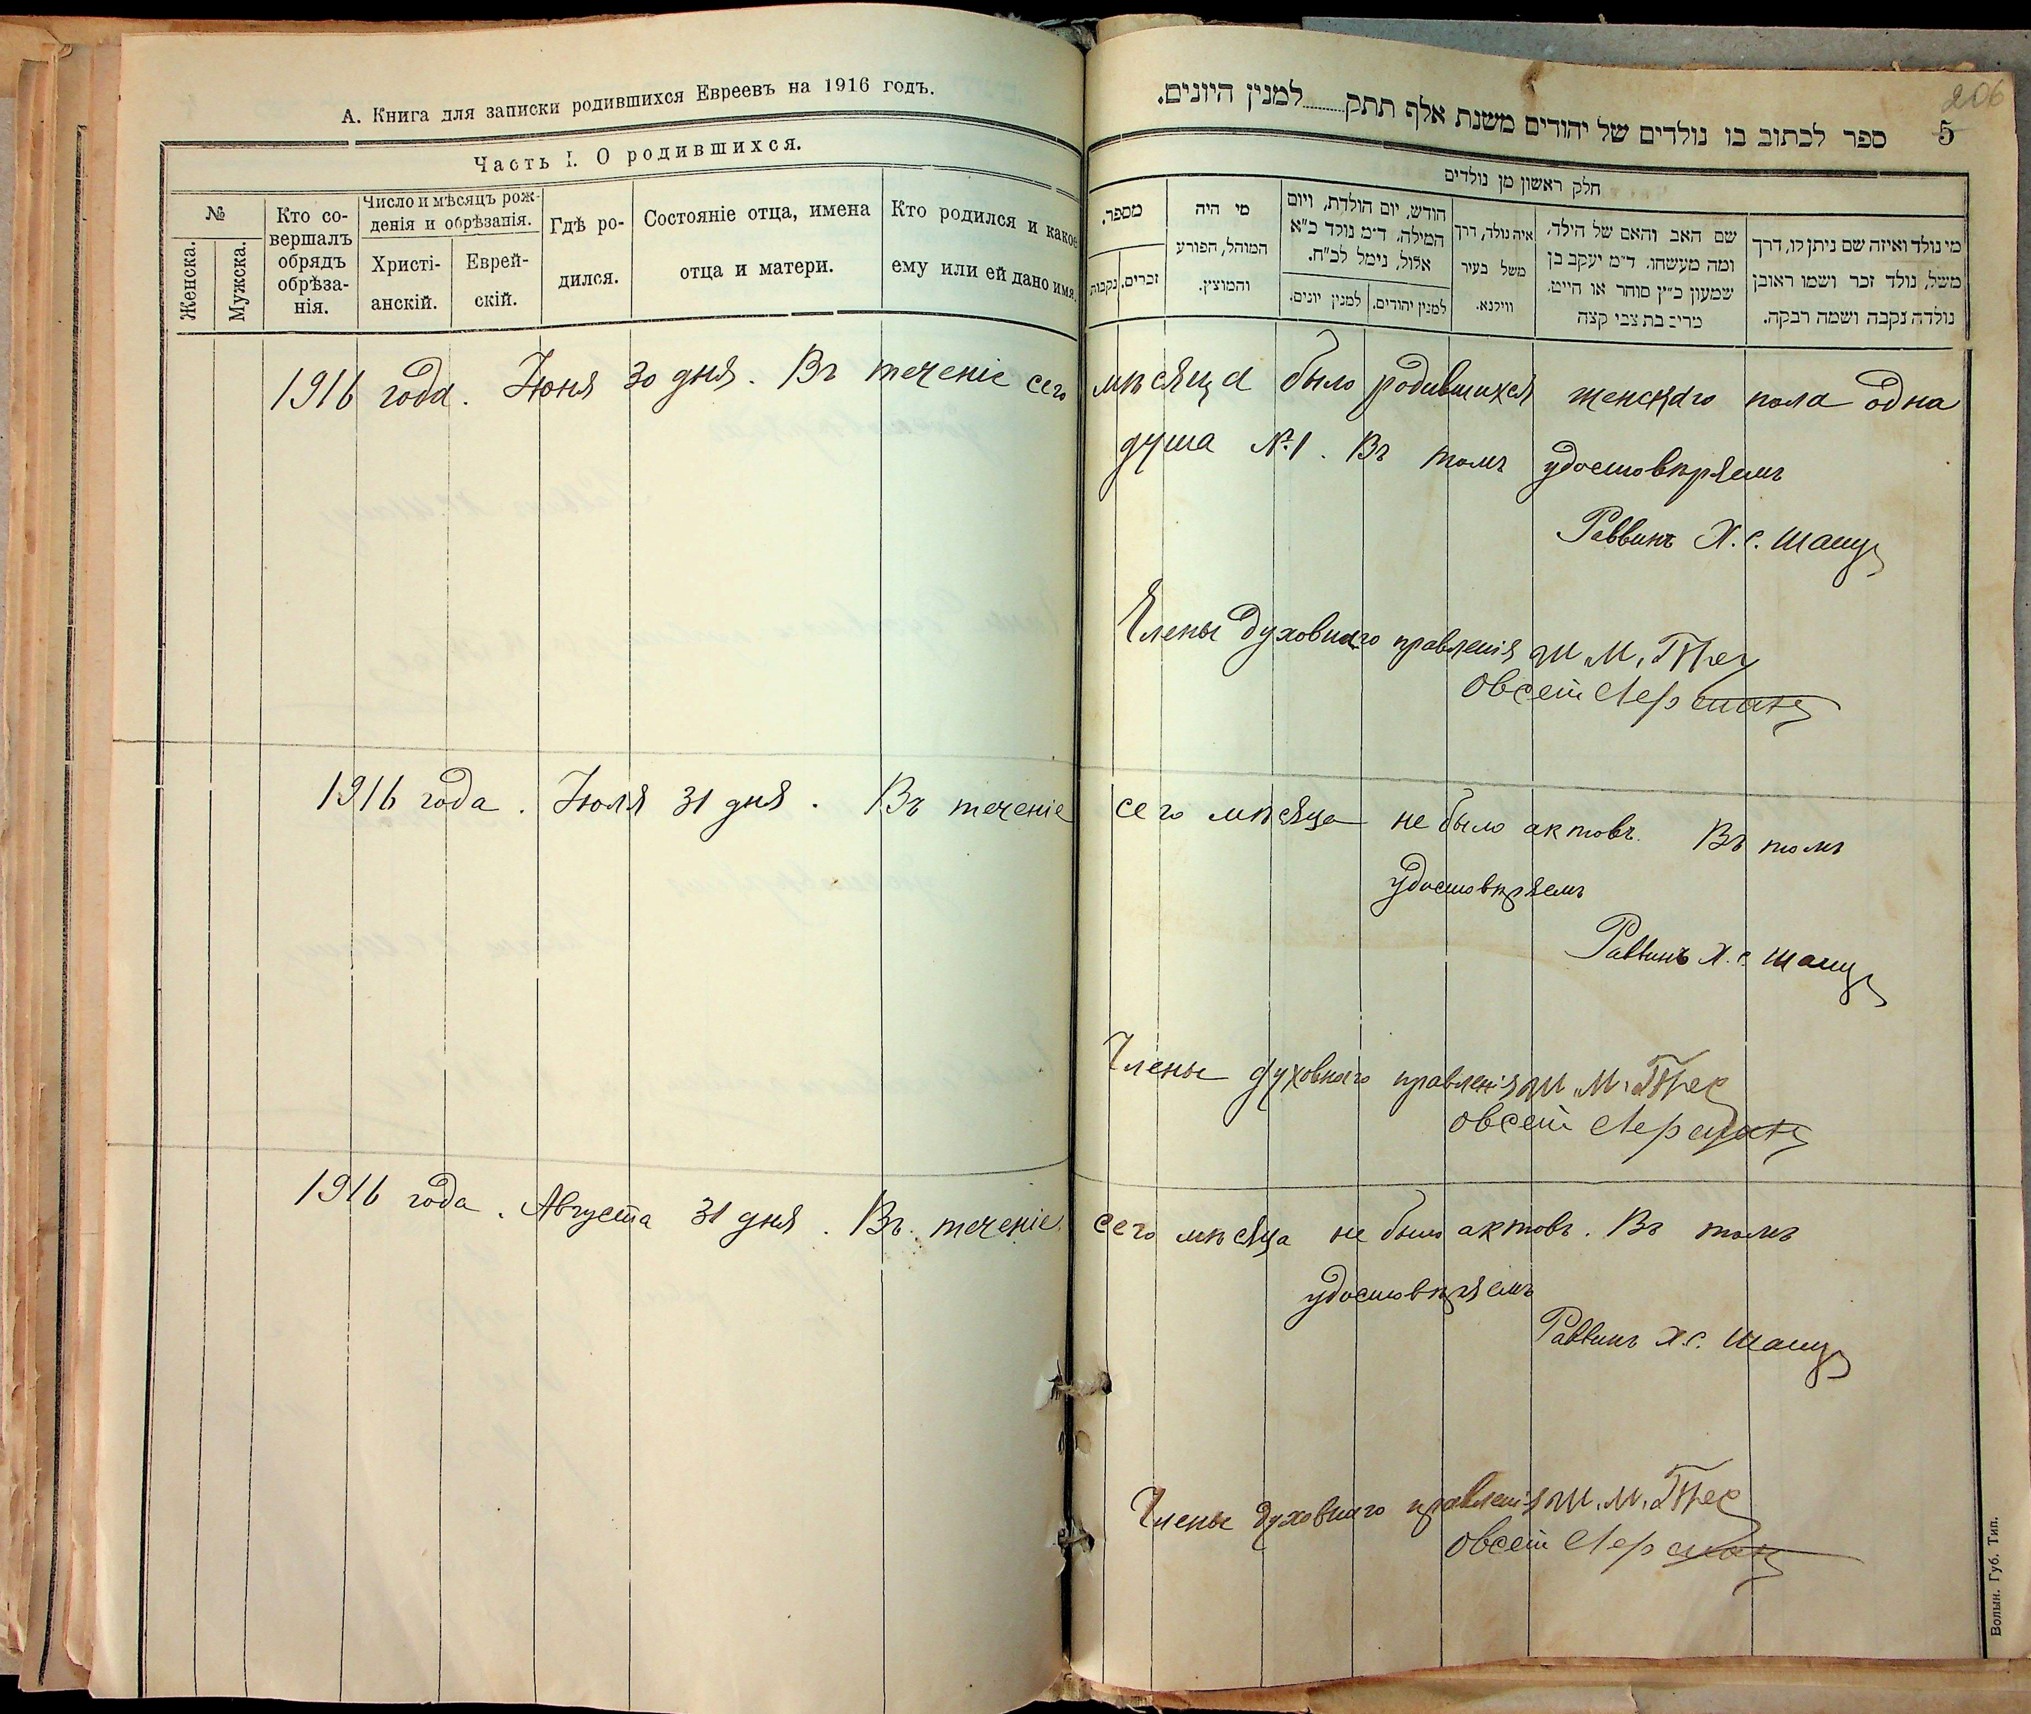 А. Книга для записки родившихся Евреевъ на 1916 годъ.
Часть I. О родившихся.
№
Женска.
Мужска.
Кто со-
вершалъ
обрядъ
обрѣза-
нія.
Число и мѣсяцъ рож-
денія и обрѣзанія.
Христі-
анскій.
Еврей-
скій.
Гдѣ ро-
дился.
Состояніе отца, имена
отца и матери.
Кто родился и какое
ему или ей дано имя.
206
5
ספר לכתוב בו נולדים של יהודים משנת אלף תתק......למנין היונים.
חלק ראשון מן נולדים
מספר.
זכרים.
נקבות
מי היה
המוהל, הפורע
והמוצץ.
חודש, יום הולדת, ויום
המילה. ד״מ נולד כ״א
אלול, נימל לכ״ח.
למנין יהודים.
למנין יונים.
איה נולד, דרך
משל בעיר
ווילנא.
שם האב והאם של הילד,
ומה מעשהו. ד״מ יעקב בן
שמעון כ״ץ סוחר או חייט.
מרים בת צבי קצה
מי נולד ואיזה שם ניתן לו, דרך
משל, נולד זכר ושמו ראובן
נולדה נקבה ושמה רבקה.
1916 года. Іюня 30 дня. Въ теченіе сего мѣсяца было родившихся женскаго пола одна
душа №1. Въ томъ удостовѣряемъ
Раввинъ Х. С. Шацъ
Члены духовнаго правленія Ш. М.
Овсей Лерман
1916 года. Іюля 31 дня. Въ теченіе сего мѣсяца не было актовъ. Въ томъ
удостовѣряемъ
Раввинъ Х. С. Шацъ
Члены духовнаго правленія Ш. М.
Овсей Лерман
1916 года. Августа 31 дня. Въ теченіе сего мѣсяца не было актовъ. Въ томъ
удостовѣряемъ
Раввинъ Х. С. Шацъ
Члены духовнаго правленія Ш. М.
Овсей Лерман
Волын. Губ. Тип.